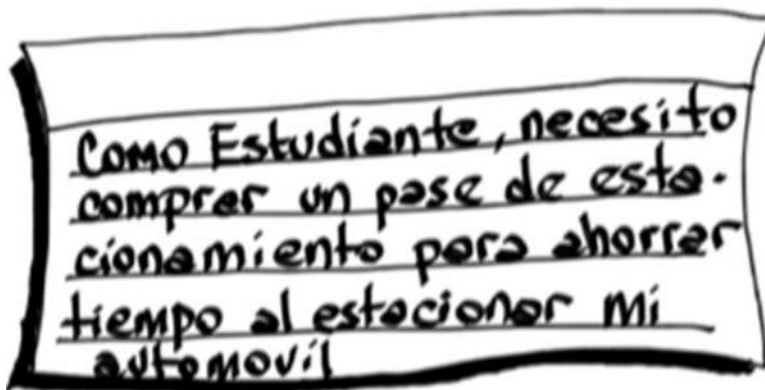 Como Estudiante, necesito
comprar un pase de esta-
cionamiento para ahorrar
tiempo al estacionar mi
automovil